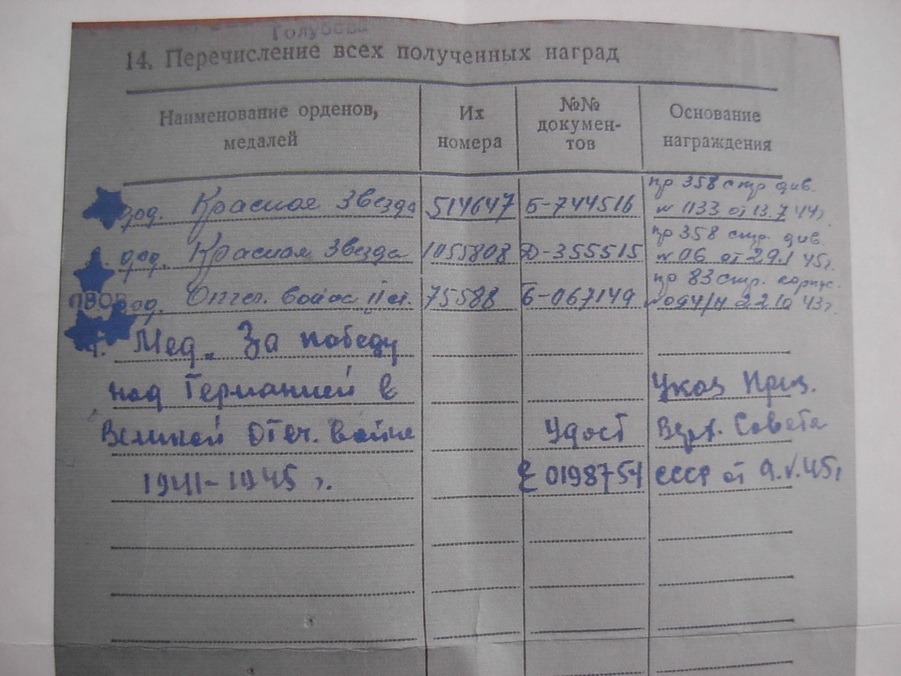 Голубева
14. Перечисление всех полученных наград
Наименование орденов, медалей
Их номера
№№ документов
Основание награждения
орд. Красная Звезда 514647 Б-744516 пр 358 стр див. № 1133 от 13.7 44г
орд. Красная Звезда 1055808 Д-355515 пр 358 стр. див. № 06 от 29.1 45г.
орд. Отеч. война II ст. 75588 Б-067149 пр 83 стр. корпус.
4. Мед. За победу
над Германией в Указ През.
Великой Отеч. войне Удост Верх. Совета
1941-1945 г. Е 0198754 СССР от 9.V.45г